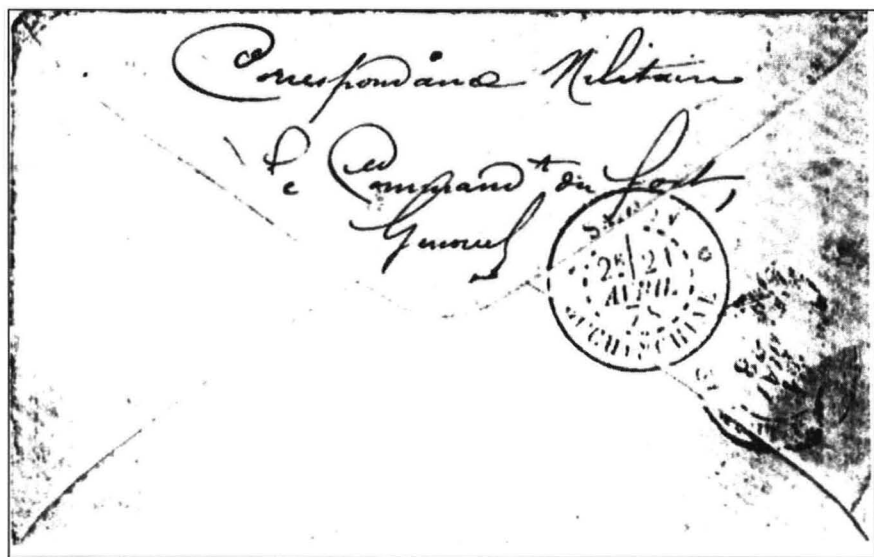 Correspondance Militaire
Le Command^t du fort
SAIGON
2^E 21
AVRIL
78
COCHINCHINE